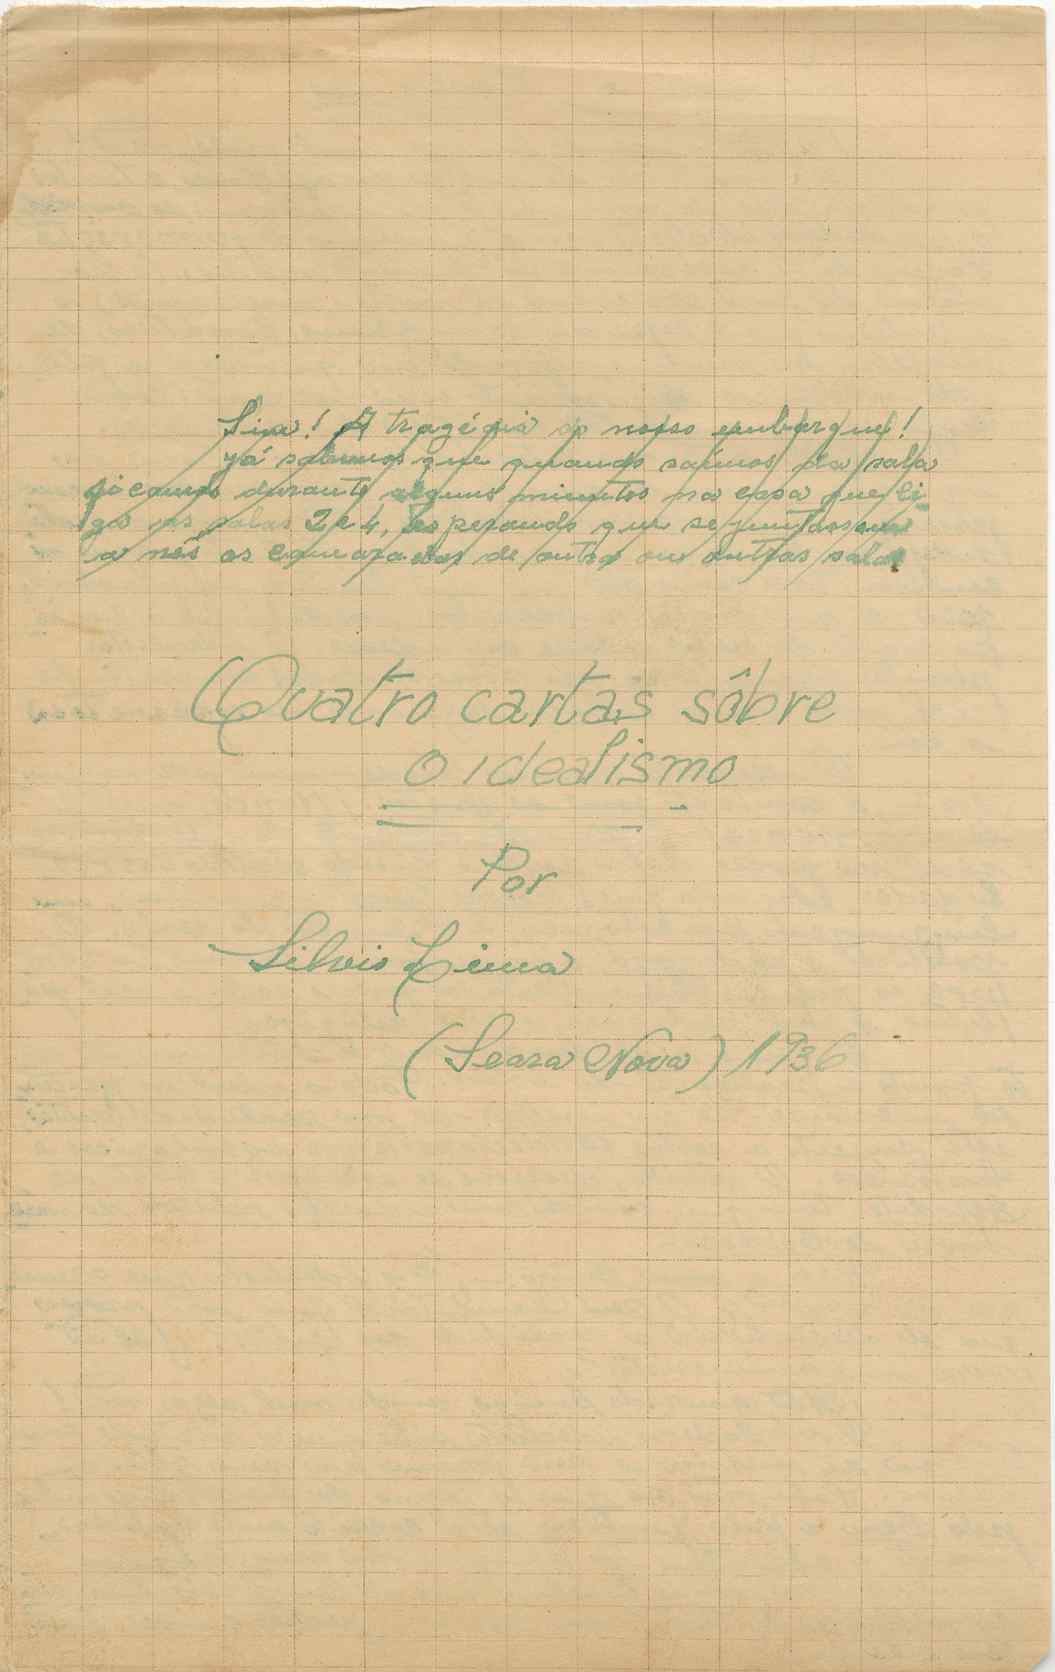 Sim! A tragédia do nosso embarque!
Já sabemos que quando saímos da sala
ficamos durante alguns minutos na casa que li-
ga as salas 2 e 4, esperando que se juntassem
a nós os camaradas de outra ou outras salas
Quatro cartas sôbre
o idealismo
Por
Silvio Lima
(Seara Nova) 1936